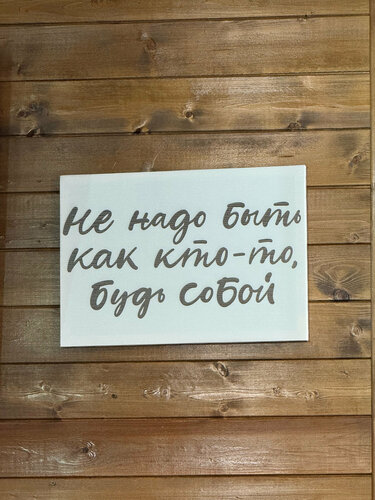 Не надо быть
как кто-то,
будь собой